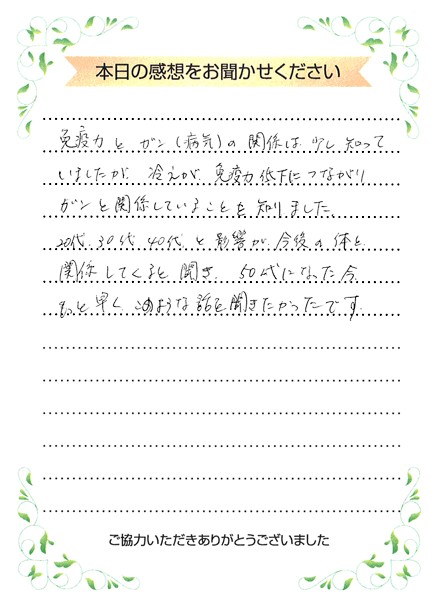 本日の感想をお聞かせください
免疫力と ガン(病気)の 関係は 少し 知って
いましたが 冷えが 免疫力低下に つながり
ガンと関係していることを 知りました
20代 30代 40代 と 影響が 今後の 体と
関係してくると 聞き、50代になった今
もっと早く このような 話を聞きたかったです.
ご協力いただきありがとうございました